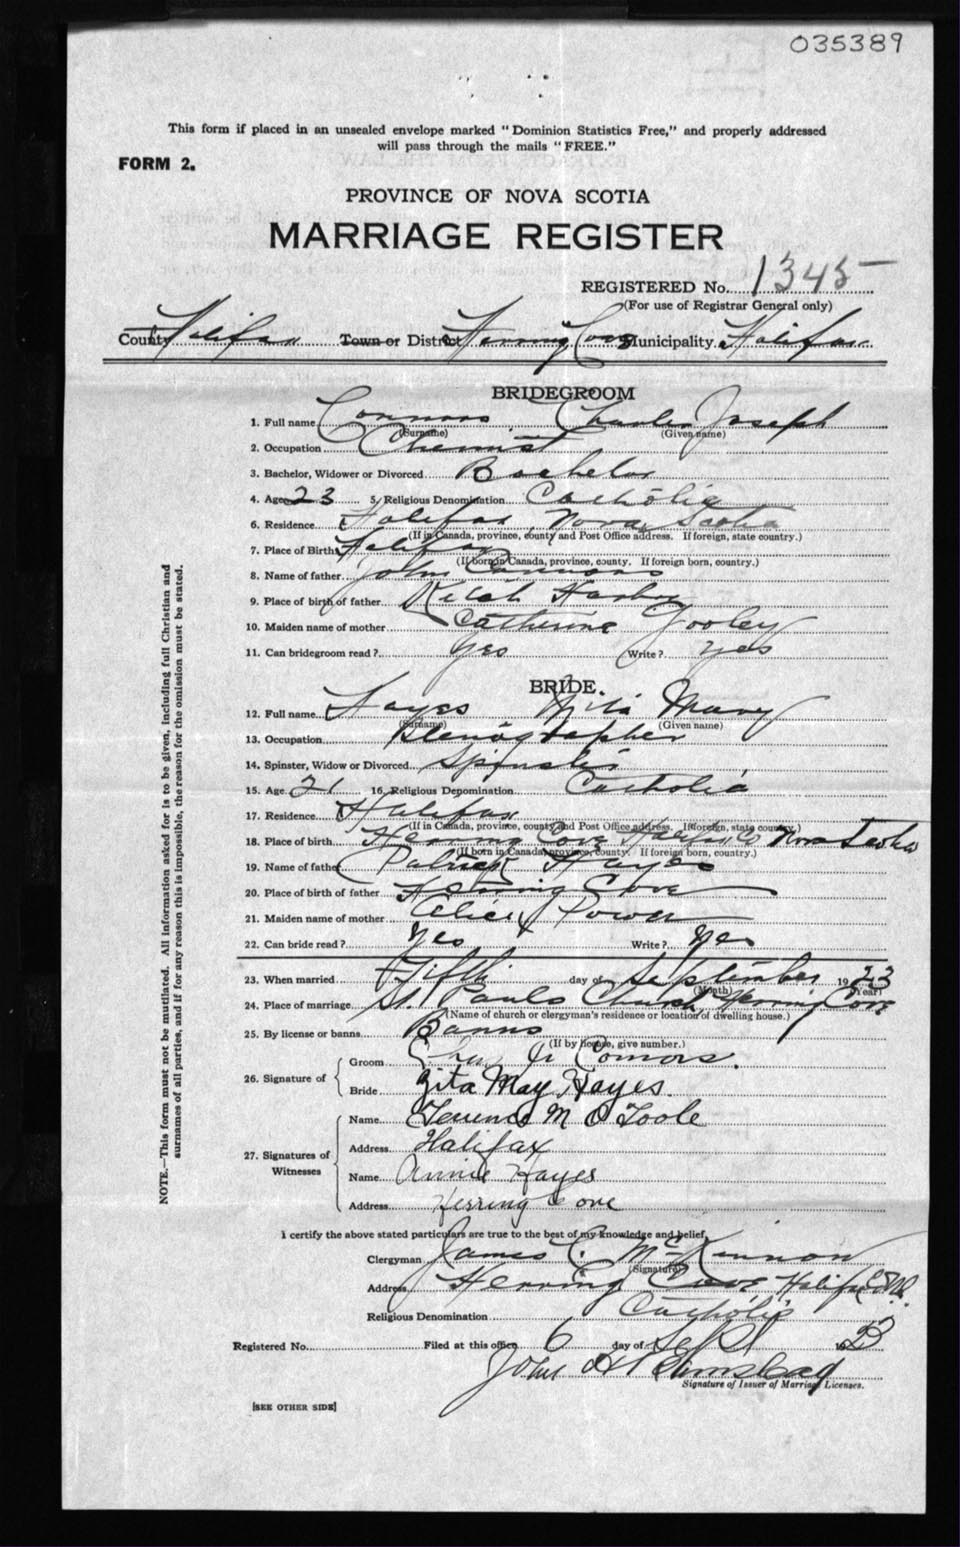 035389
This form if placed in an unsealed envelope marked "Dominion Statistics Free," and properly addressed
will pass through the mails "FREE."
FORM 2.
PROVINCE OF NOVA SCOTIA
MARRIAGE REGISTER
REGISTERED No. 1345
(For use of Registrar General only)
County Halifax Town or District Herring Cove Municipality Halifax
BRIDEGROOM
1. Full name Connors Charles Joseph
(Surname) (Given name)
2. Occupation Chemist
3. Bachelor, Widower or Divorced Bachelor
4. Age 23 5. Religious Denomination Catholic
6. Residence Halifax, Nova Scotia
(If in Canada, province, county and Post Office address. If foreign, state country.)
7. Place of Birth Halifax
(If born in Canada, province, county. If foreign born, country.)
8. Name of father John Connors
9. Place of birth of father Ketch Harbor
10. Maiden name of mother Catherine Gooley
11. Can bridegroom read? Yes Write? Yes
BRIDE.
12. Full name Hayes Zita Mary
(Surname) (Given name)
13. Occupation Stenographer
14. Spinster, Widow or Divorced Spinster
15. Age 21 16. Religious Denomination Catholic
17. Residence Halifax
(If in Canada, province, county and Post Office address. If foreign, state country.)
18. Place of birth Herring Cove Halifax Co Nova Scotia
(If born in Canada, province, county. If foreign born, country.)
19. Name of father Patrick Hayes
20. Place of birth of father Herring Cove
21. Maiden name of mother Alice Power
22. Can bride read? Yes Write? Yes
23. When married Fifth day of September 1923
(Month) (Year)
24. Place of marriage St. Pauls Church, Herring Cove
(Name of church or clergyman's residence or location of dwelling house.)
25. By license or banns Banns
(If by license, give number.)
26. Signature of { Groom Chas J. Connors.
Bride Zita May Hayes.
27. Signatures of Witnesses { Name Terence M O'Toole
Address Halifax
Name Annie Hayes
Address Herring Cove
I certify the above stated particulars are true to the best of my knowledge and belief,
Clergyman James C. McKinnon
(Signature)
Address Herring Cove Halifax Co. N.S.
Religious Denomination Catholic
Registered No. Filed at this office 6 day of Sept 1923
John H
Signature of Issuer of Marriage Licenses.
[SEE OTHER SIDE]
NOTE.—This form must not be mutilated. All information asked for is to be given, including full Christian and
surnames of all parties, and if for any reason this is impossible, the reason for the omission must be stated.